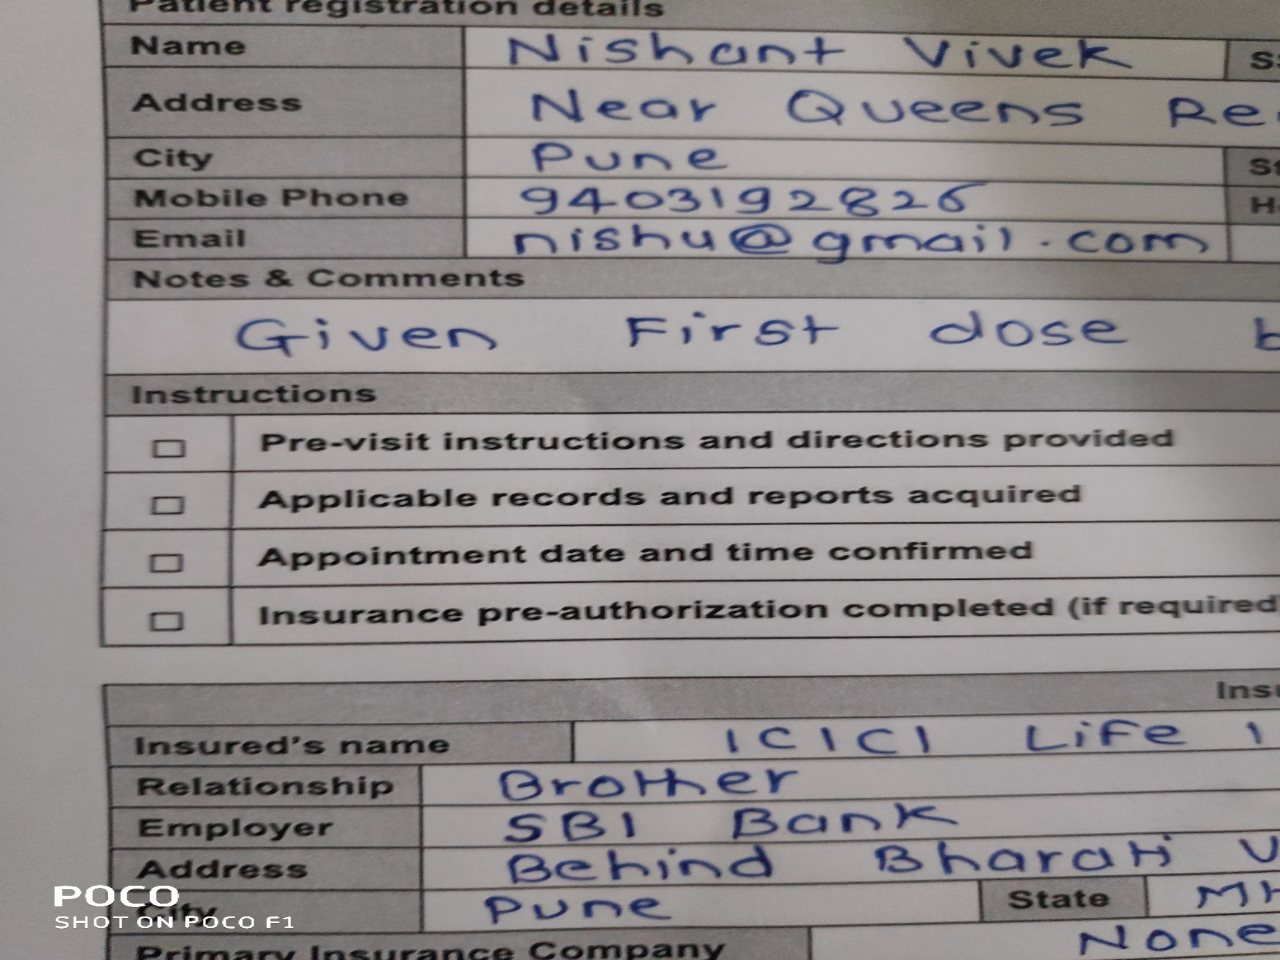 Patient registration details
Name Nishant Vivek
Address Near Queens
City Pune
Mobile Phone 9403192826
Email nishu@gmail.com
Notes & Comments
Given First dose
Instructions
Pre-visit instructions and directions provided
Applicable records and reports acquired
Appointment date and time confirmed
Insurance pre-authorization completed (if required
Insured's name ICICI Life
Relationship Brother
Employer SBI Bank
Address Behind Bharati
City Pune State MH
Primary Insurance Company None
POCO
SHOT ON POCO F1